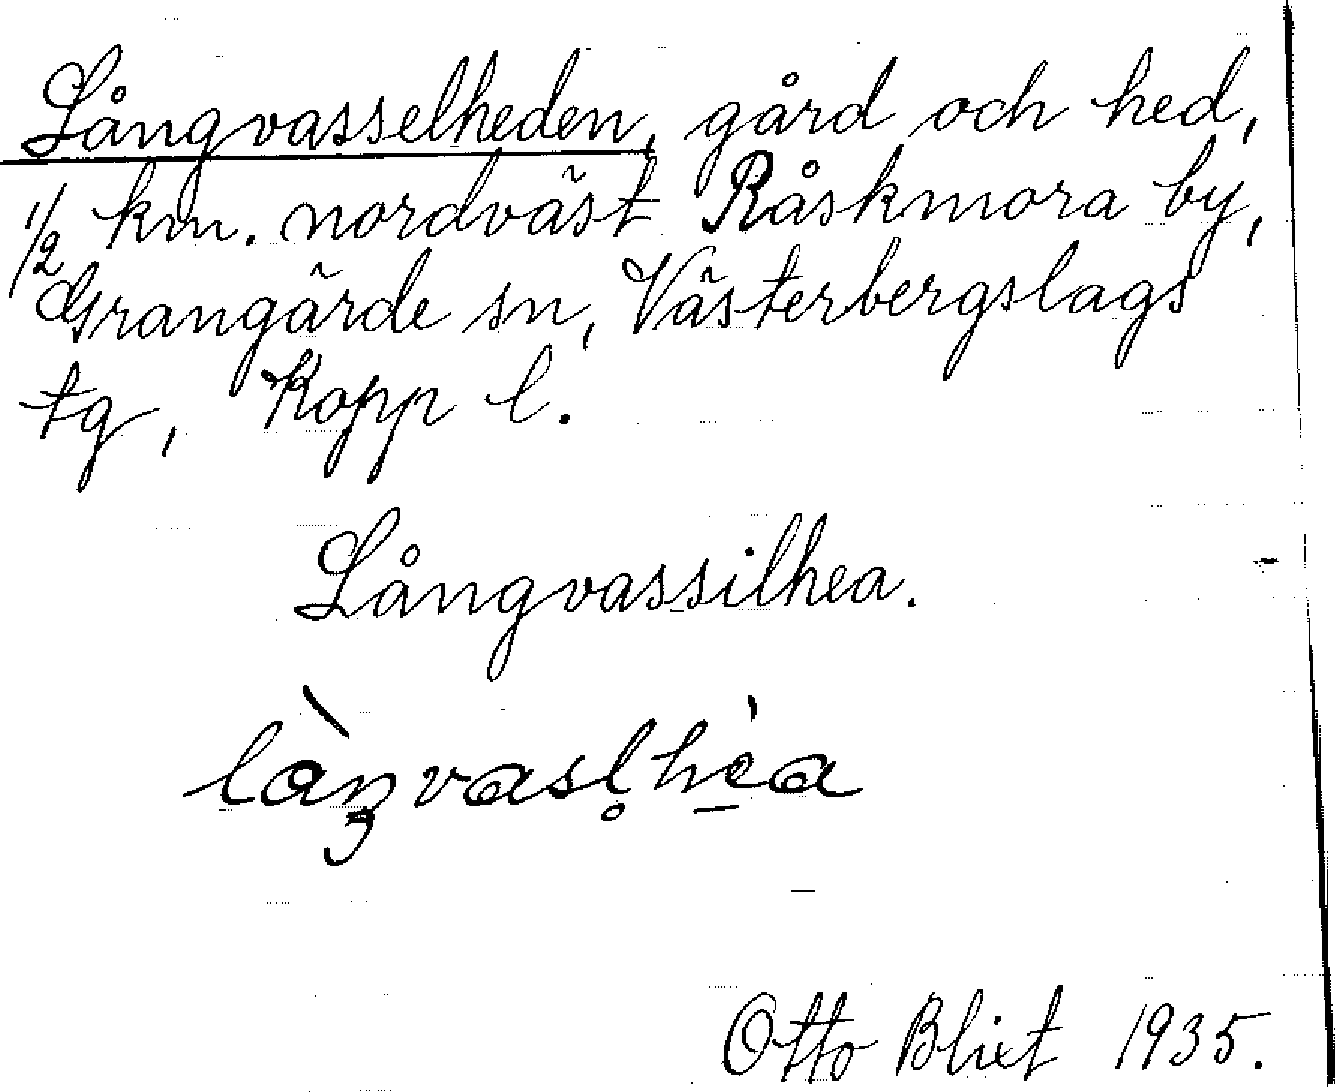 Långvasselheden, gård och hed,
1/2 km. nordväst Råskmora by,
Grangärde sn, Västerbergslags
tg, Kopp l.
Långvassilhea.
làŋvasl̥hè̠a
Otto Blixt 1935.